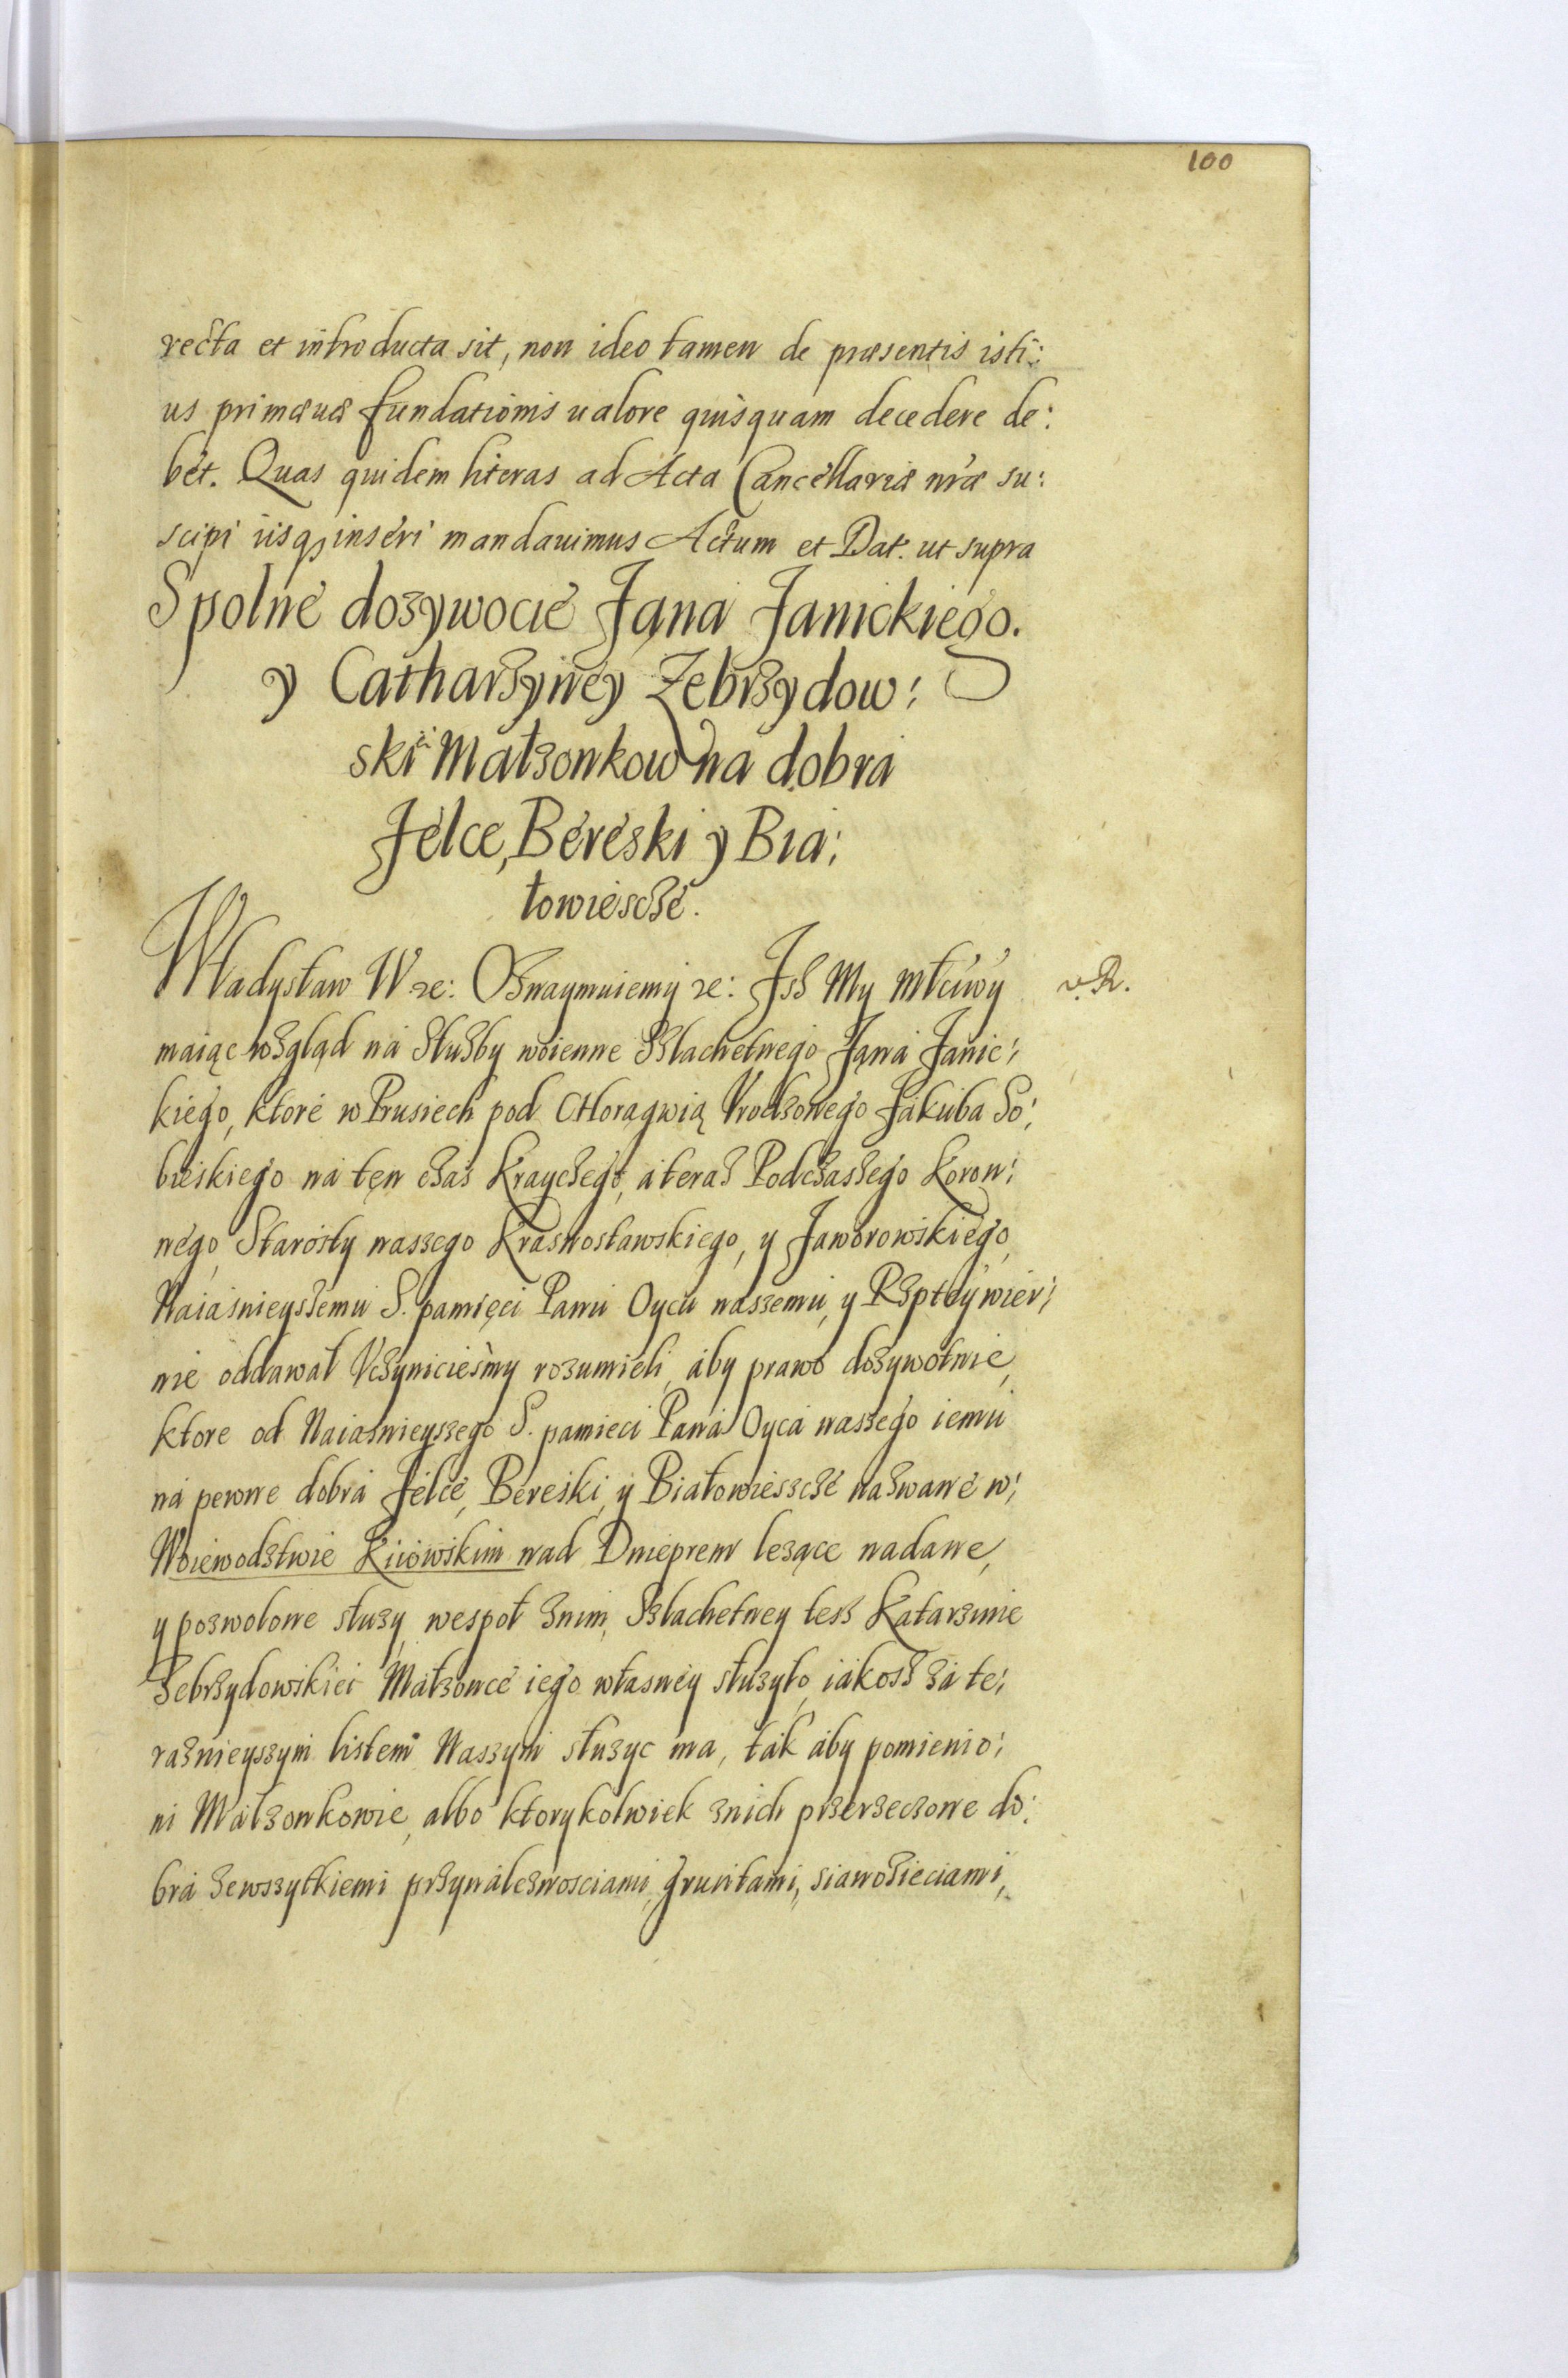 100
recta et introducta sit, non ideo tamen de præsentis isti:
us primæuæ fundationis ualore quisquam decedere de:
bet. Quas quidem literas ad Acta Cancellariæ nræ su:
scipi iisq; inseri mandauimus Actum et Dat. ut supra
Spolne dozywocie Jana Janickiego.
y Catharzyney Zebrzydow:
skiei Małzonkow na dobra
Jelce, Bereski y Bia:
łowiescze.
Władysław W &c: Oznaymuiemy &c: Isz My młciwy v. R.
maiąc wzgląd na słuzby woienne Szlachetnego Jana Janic:
kiego, ktore w Prusiech pod Chorągwią Vrodzonego Jakuba So:
bieskiego na ten czas Krayczego, a teraz Podczaszego Koron:
nego, Starosty naszego Krasnostawskiego, y Jaworowskiego,
Naiasnieyszemu S. pamięci Panu Oycu naszemu, y Rzptey wier:
nie oddawał Vczyniciesmy rozumieli, aby prawo dozywotnie,
ktore od Naiasnieyszego S. pamieci Pana Oyca naszego iemu
na pewne dobra Jelce, Bereski, y Białowieszcze nazwane w:
Woiewodztwie Kiiowskim nad Dnieprem lezące nadane,
y pozwolone słuzy, wespoł znim, Szlachetney tesz Katarzinie
Zebrzydowskiei Małzonce iego własney słuzyło, iakosz za te:
raznieyszym listem Naszym słuzyc ma, tak aby pomienio:
ni Małzonkowie, albo ktorykolwiek znich przerzeczone do:
bra zewszytkiemi przynaleznosciami, gruntami, sianozieciami,